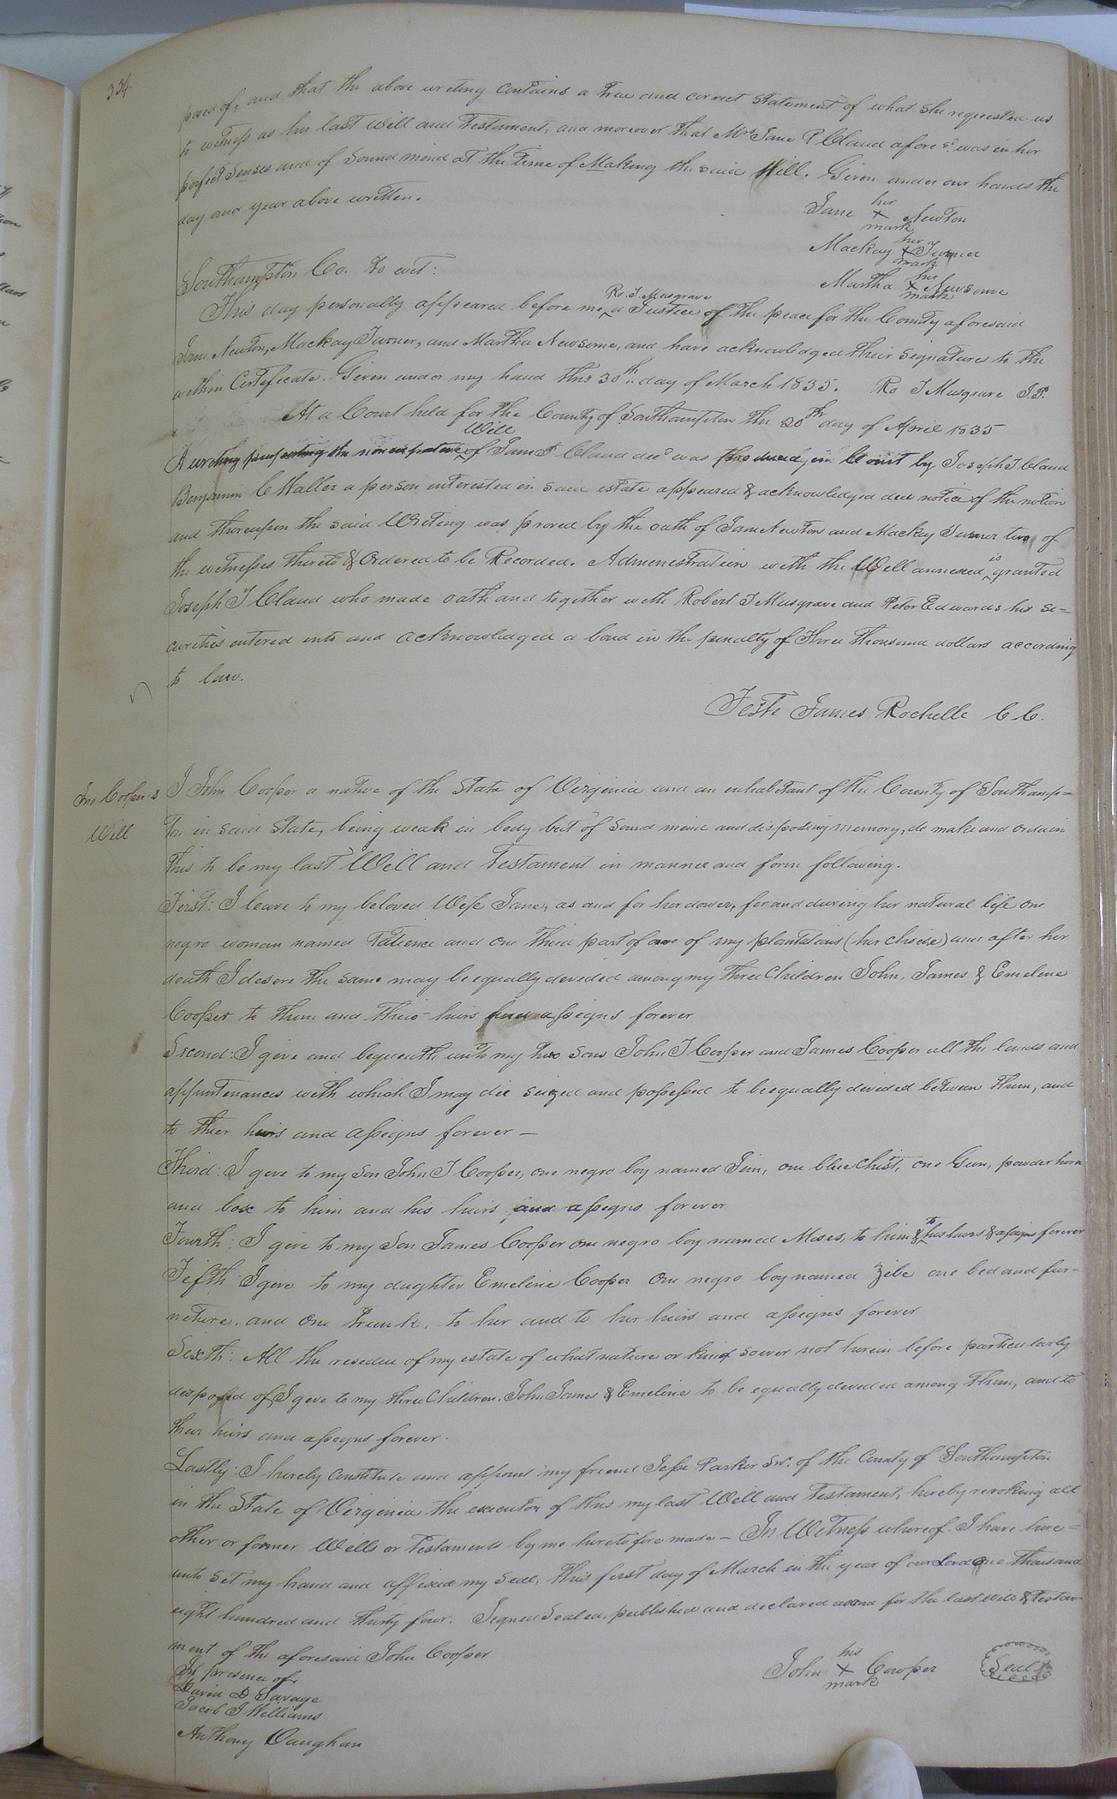 334
pared of, and that the above writing contains a true and correct statement of what she requested us
to witness as her last Will and Testament, and moreover that Mrs Jane P. Claud afore sd. was in her
perfect Senses and of Sound mind at the time of Making the said Will. Given under our hands the
day and year above written.
her
Jane X Newton
mark
her
Mackay X Turner
mark
her
Martha X Newsome
mark
Southampton Co. To wit:
Ro. T. Musgrave
This day personally appeared before me, a Justice of the peace for the County aforesaid
Jane Newton, Mackay Turner, and Martha Newsome, and have acknowledged their signatures to the
within Certificate. Given under my hand this 30th day of March 1835. Ro T Musgrave J.P.
At a Court held for the County of Southampton the 20th day of April 1835
Will
A writing purporting the nuncupative of Jane P Claud decd was produced in Court by Joseph T Claud
Benjamin C Waller a person interested in said estate appeared & acknowledged due notice of the motion
and thereupon the said Writing was proved by the oath of Jane Newton and Mackay Turner two of
the witnesses thereto & Ordered to be Recorded. Administration with the Will annexed is granted
Joseph T Claud who made oath and together with Robert T Musgrave and Peter Edwards his se=
curities entered into and acknowledged a bond in the penalty of three thousand dollars according
to law.
Teste James Rochelle C C.
Jno Cooper's
Will
I John Cooper a native of the State of Virginia and an inhabitant of the County of Southamp=
ton in said State, being weak in body but of sound mind and disposing memory, do make and ordain
this to be my last Will and Testament in manner and form following.
First: I leave to my beloved Wife Jane, as and for her dower, for and during her natural life one
negro woman named Patience and one third part of one of my plantations (her choice) and after her
death I desire the same may be equally devided among my three Children John, James & Emeline
Cooper to them and their heirs and assigns forever
Second: I give and bequeath unto my two Sons John T Cooper and James Cooper all the lands and
appurtenances with which I may die seized and possessed to be equally divided between them, and
to their heirs and assigns forever —
Third: I give to my son John T Cooper, one negro boy named Jim, one blue Chist, one Gun, powder horn
and box to him and his heirs and assigns forever
Fourth: I give to my Son James Cooper one negro boy named Moses, to him & to his heirs & assigns forever
Fifth I give to my daughter Emeline Cooper one negro boy named Zebe one bed and fur-
niture, and one trunk, to her and to her heirs and assigns forever
Sixth: All the residue of my estate of what nature or kind soever not herein before particularly
disposed of, I give to my three Children, John James & Emeline to be equally devided among them, and to
their heirs and assigns forever.
Lastly: I hereby constitute and appoint my friend Jesse Parker Sr. of the County of Southampton
in the State of Virginia the executor of this my last Will and Testament, hereby revoking all
other or former Wills or Testaments by me heretofore made — In Witness whereof I have here=
unto set my hand and affixed my Seal, this first day of March in the year of our Lord one thousand
eight hundred and thirty four. Signed Sealed, published and declared as and for the last will & Testa-
ment of the aforesaid John Cooper
In presence of,
David D Savage
Jacob J Williams
Anthony Vaughan
his
John X Cooper
mark
Seal